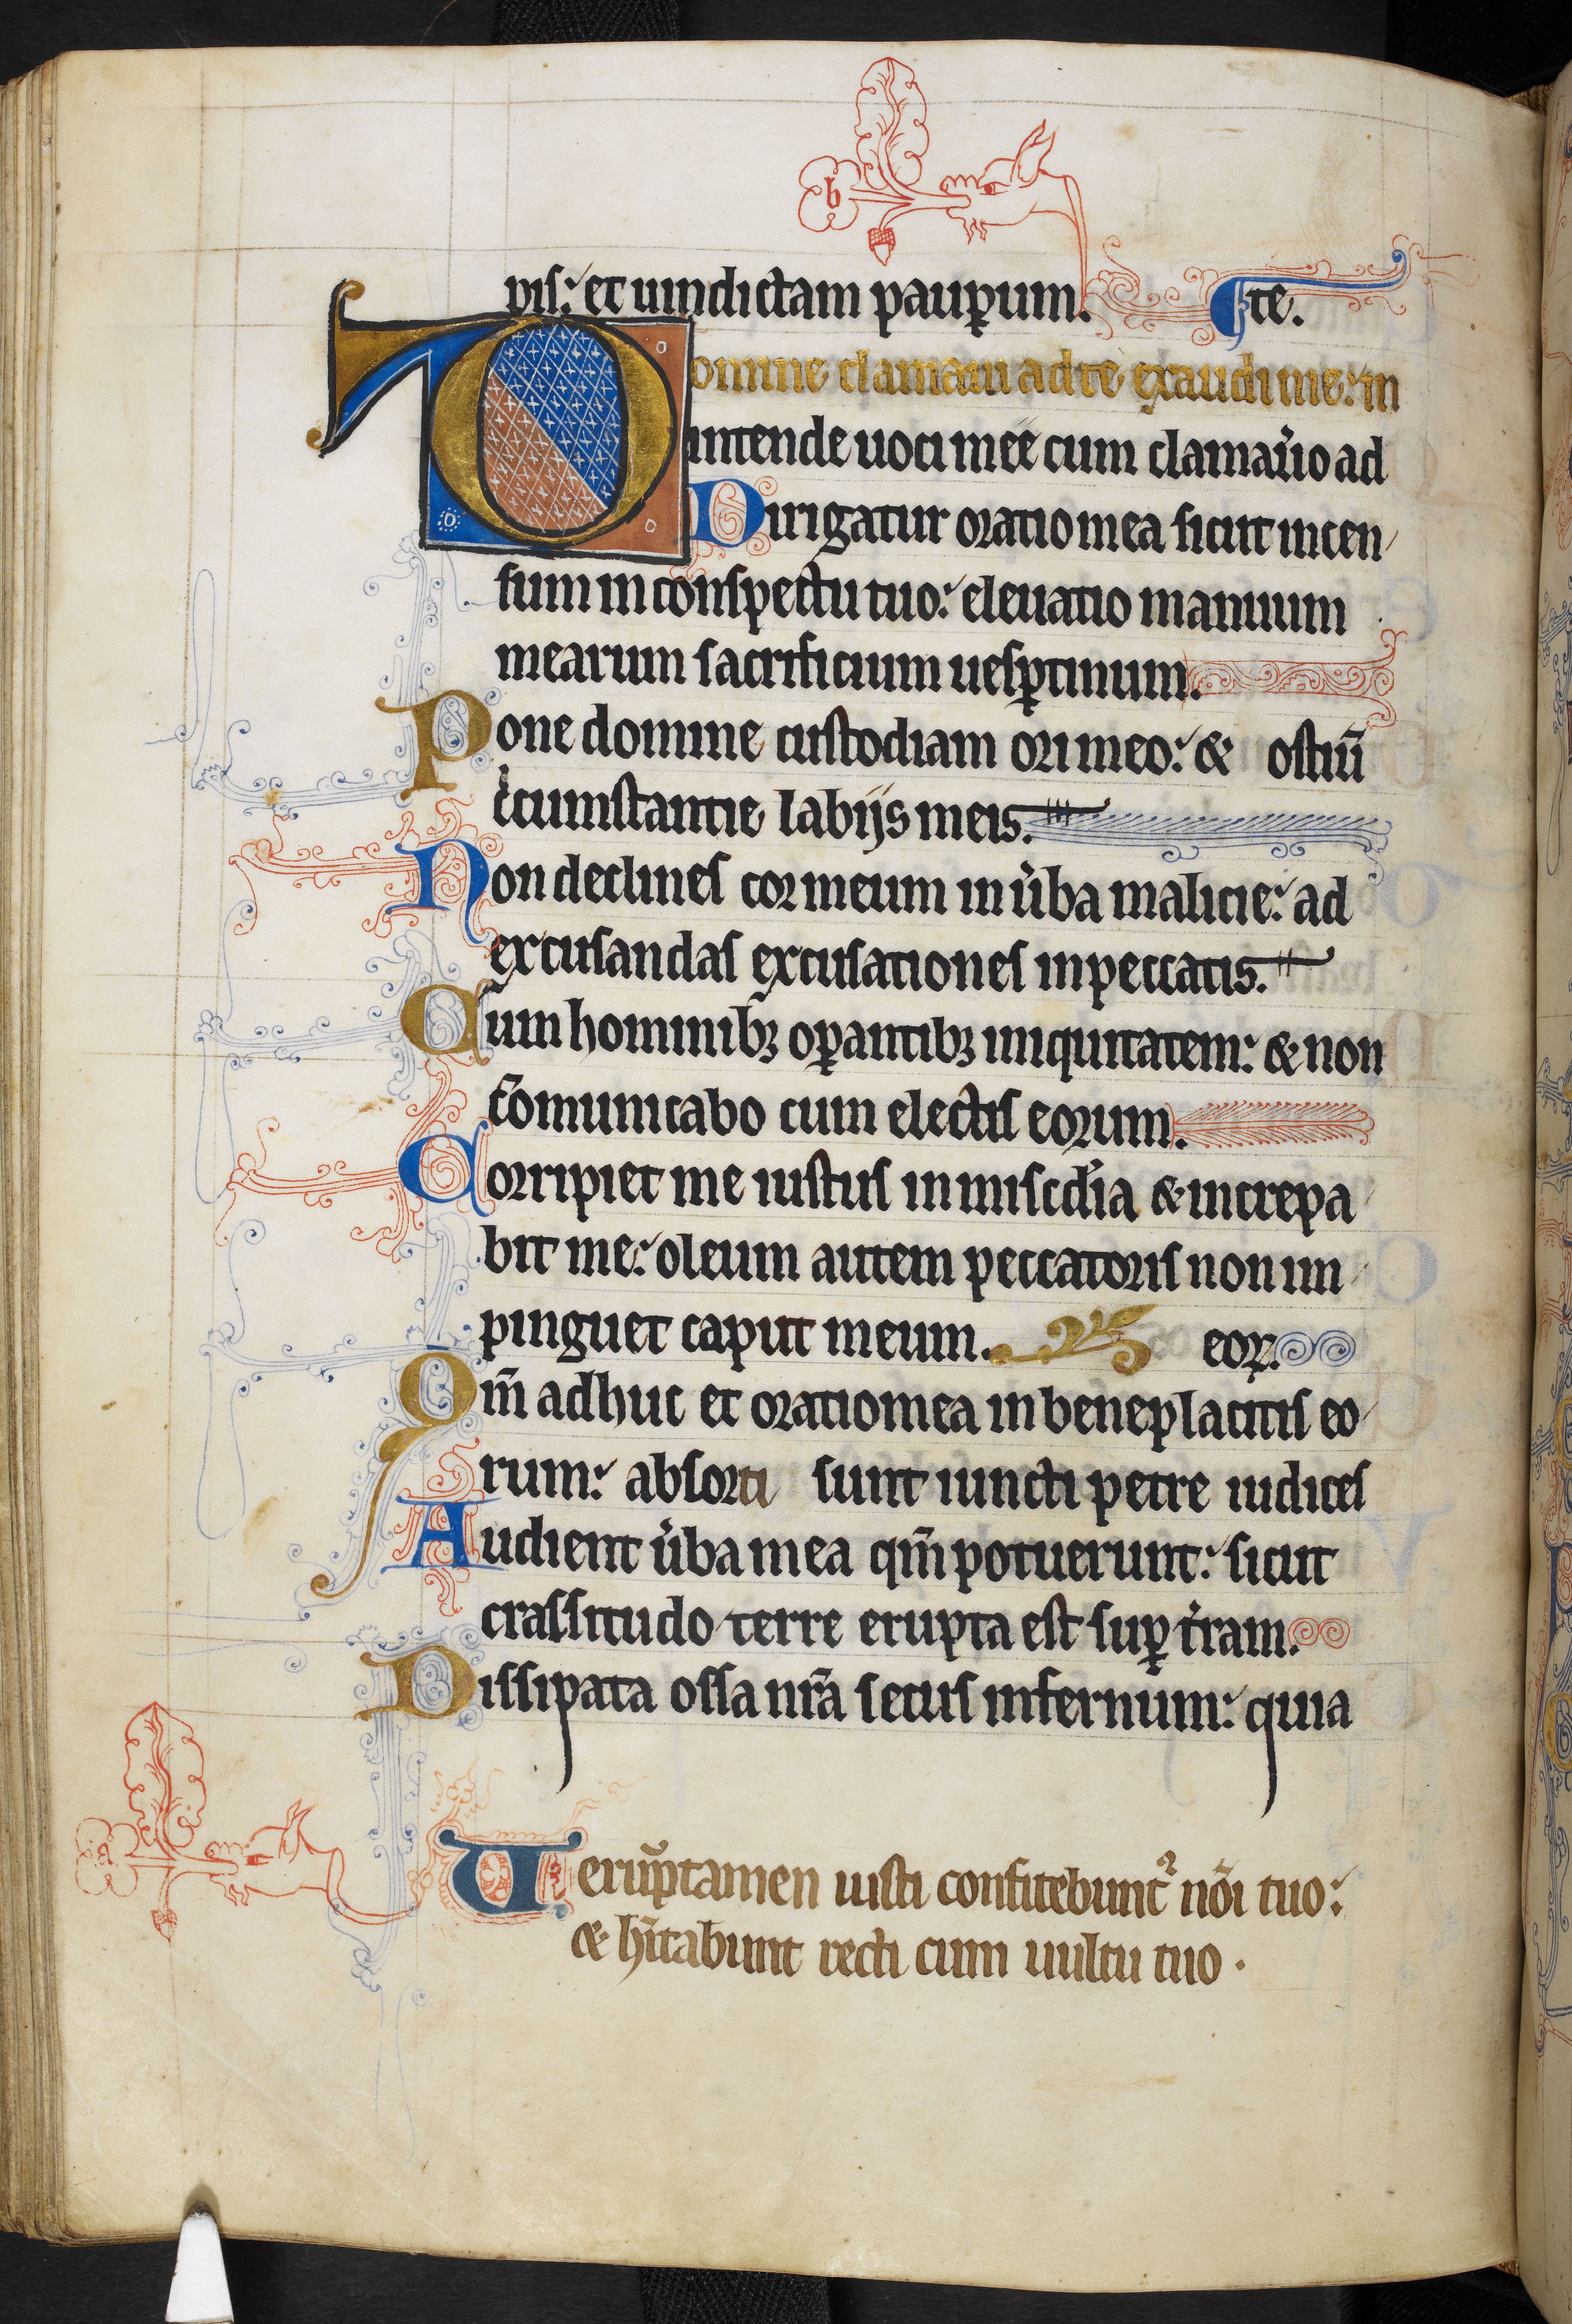 b
pis: et uindictam paup̱um. te.
Domine clamaui ad te exaudi me: in
intende uoci mee cum clamau̾o ad
Dirigatur oratio mea sicut incen
sum in conspectu tuo: eleuatio manuum
mearum sacrificium uesp̱tinum.
Pone domine custodiam ori meo: & ostiū
cͥcumstantie labijs meis.
Non declines cor meum in u̾ba malicie: ad
excusandas excusationes in peccatis.
Cum hominibꝫ op̱antibꝫ iniquitatem: & non
c̄omunicabo cum electis eorum.
Corripiet me iustus in misc̾dia & increpa
bit me: oleum autem peccatoris non im
pinguet caput meum. eoꝝ.
Qm̄ adhuc et oratio mea in beneplacitis eo
rum: absorti sunt iuncti petre iudices
Audient u̾ba mea qm̄ potuerunt: sicut
crassitudo terre erupta est sup̱ t̾ram.
Dissipata ossa nr̄a secus infernum: quia
a
Uerūp̱tamen iusti confitebunt᷑ nōi tuo:
& hītabunt recti cum uultu tuo.